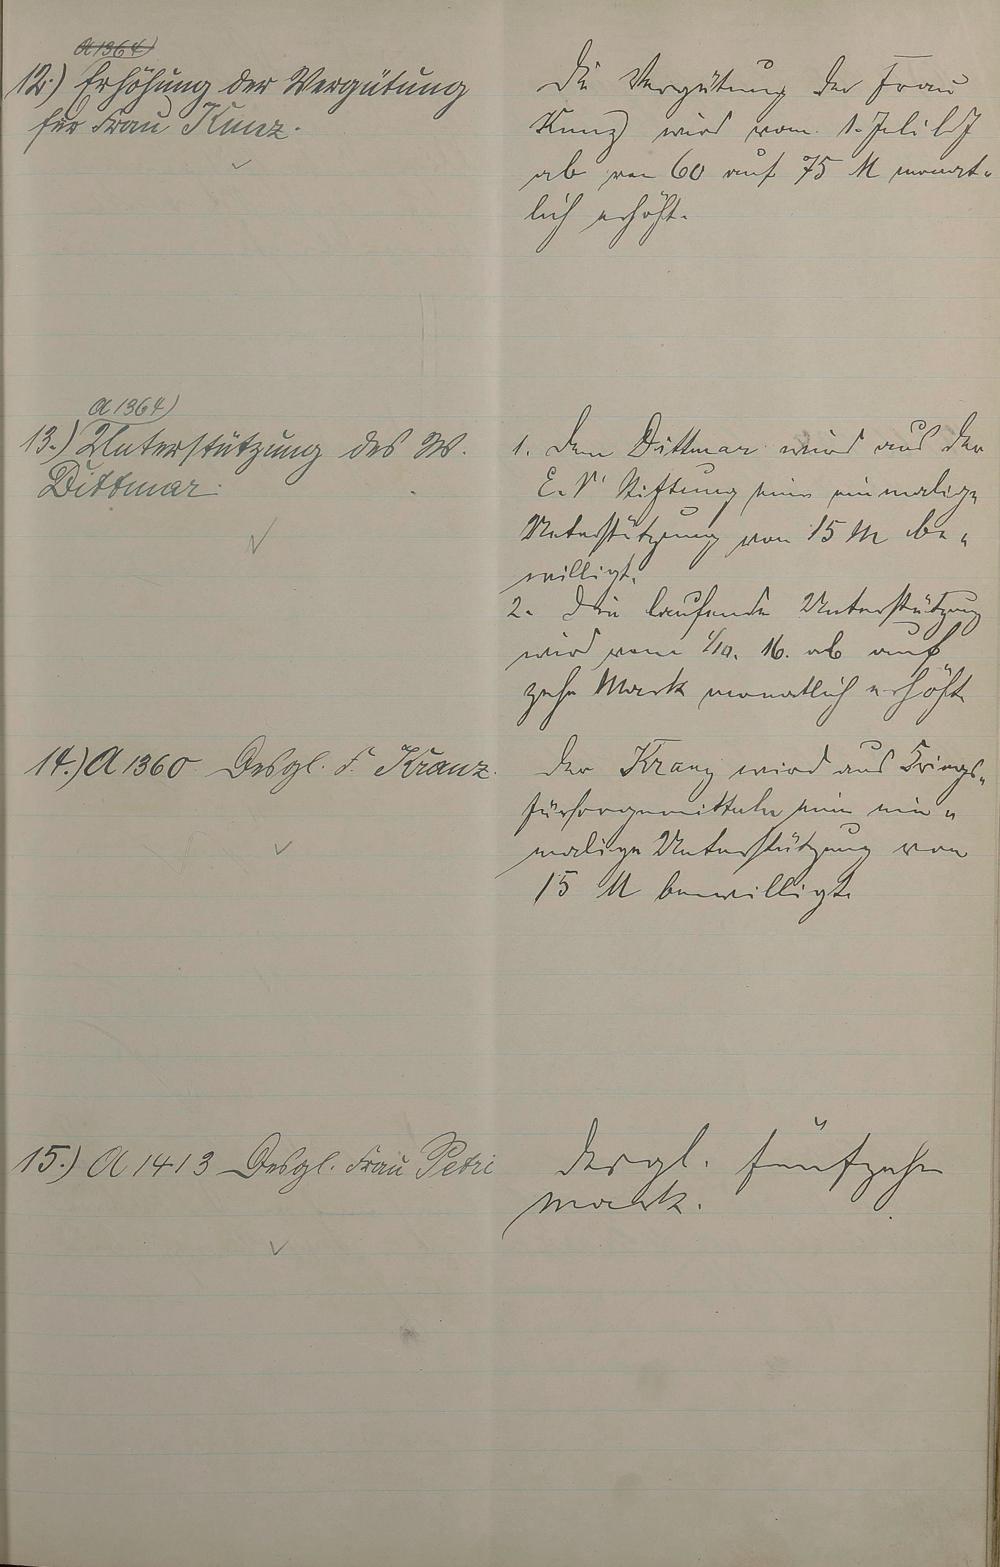 A 1364)
12.) Erhöhung der Vergütung
für Frau Kunz.
Die Vergütung der Frau
Kunz wird vom 1. Juli lds
ab von 60 auf 75 M monat-
lich erhöht.
A 1364)
13.) Unterstützung des W.
Dittmar.
1. Dem Dittmar wird aus der
E. V. Stiftung eine einmalige
Unterstützung von 15 M be-
willigt.
2. Die laufende Unterstützung
wird vom 1/10. 16. ab auf
zehn Mark monatlich erhöht
14.) A 1360 Desgl. F. Kranz.
Der Kranz wird aus Kriegs-
fürsorgemitteln eine ein-
malige Unterstützung von
15 M bewilligt.
15.) A 1413 Desgl. Frau Petri
desgl. fünfzehn
Mark.